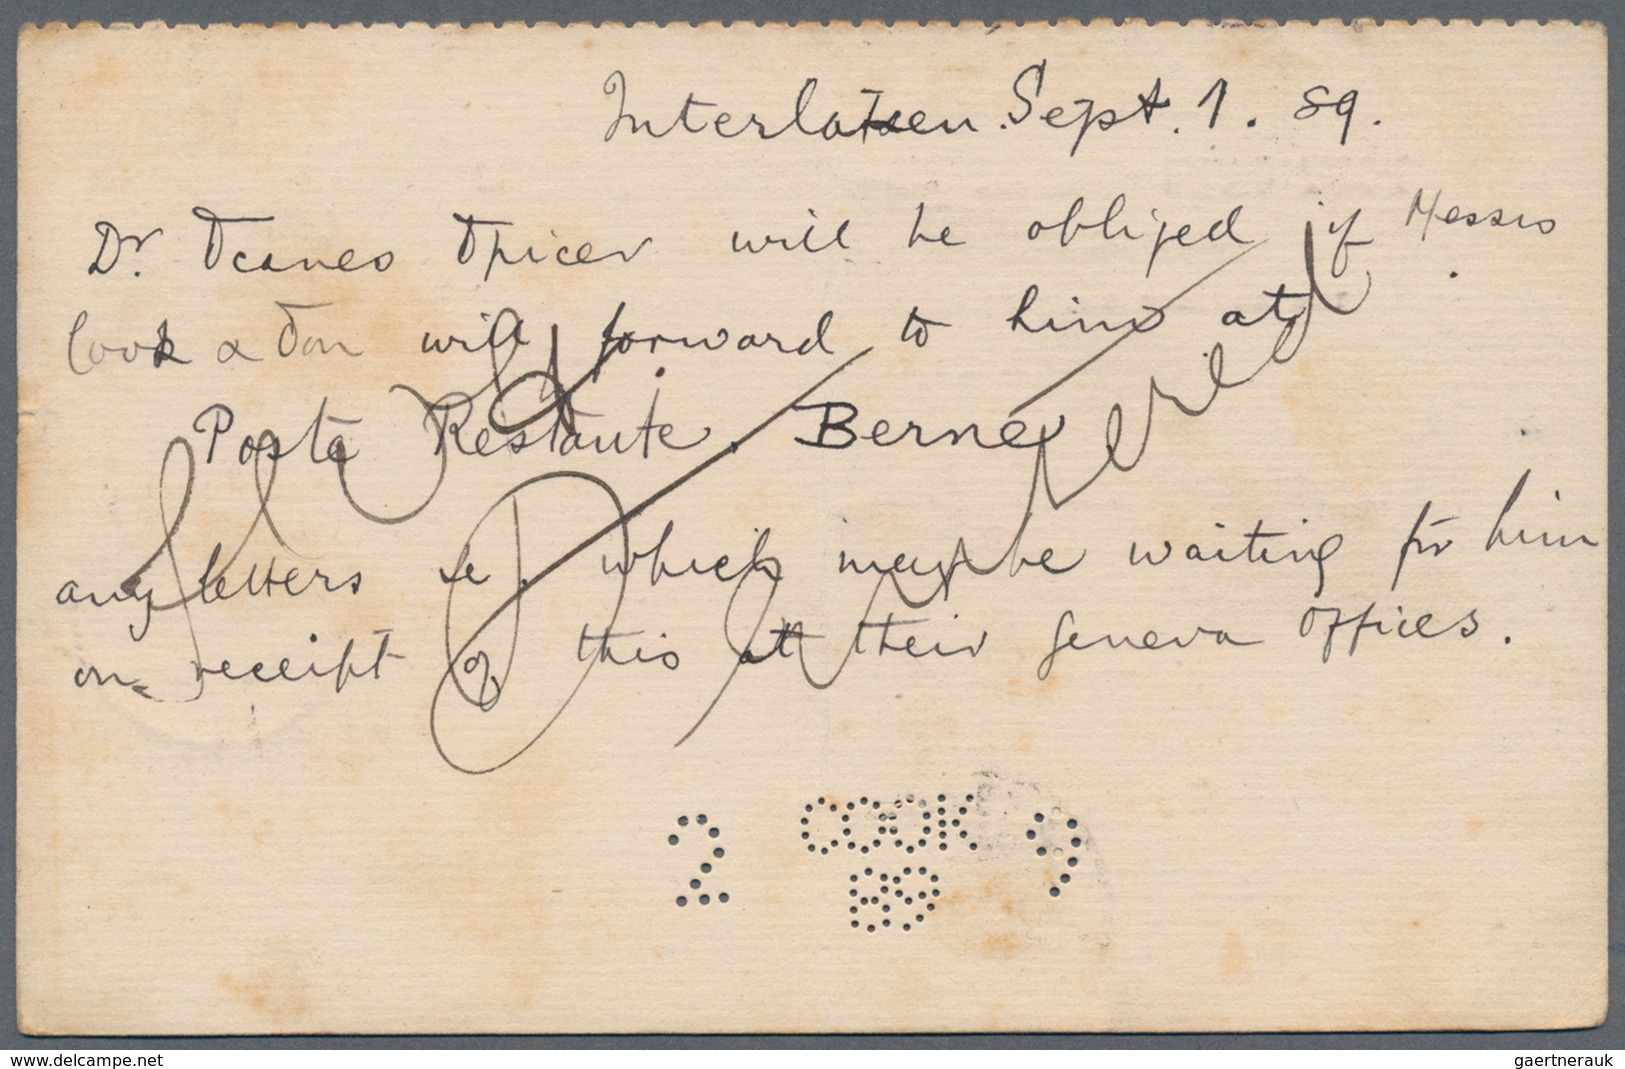 Interlaken. Sept. 1. 89.
Dr. Scanes Spicer will be obliged if Messrs
Cook & Son will forward to him at
Poste Restante. Berne
any letters &c. which may be waiting for him
on receipt of this at their Geneva Offices.
2 COOK 9
89
www.delcampe.net
gaertnerauk